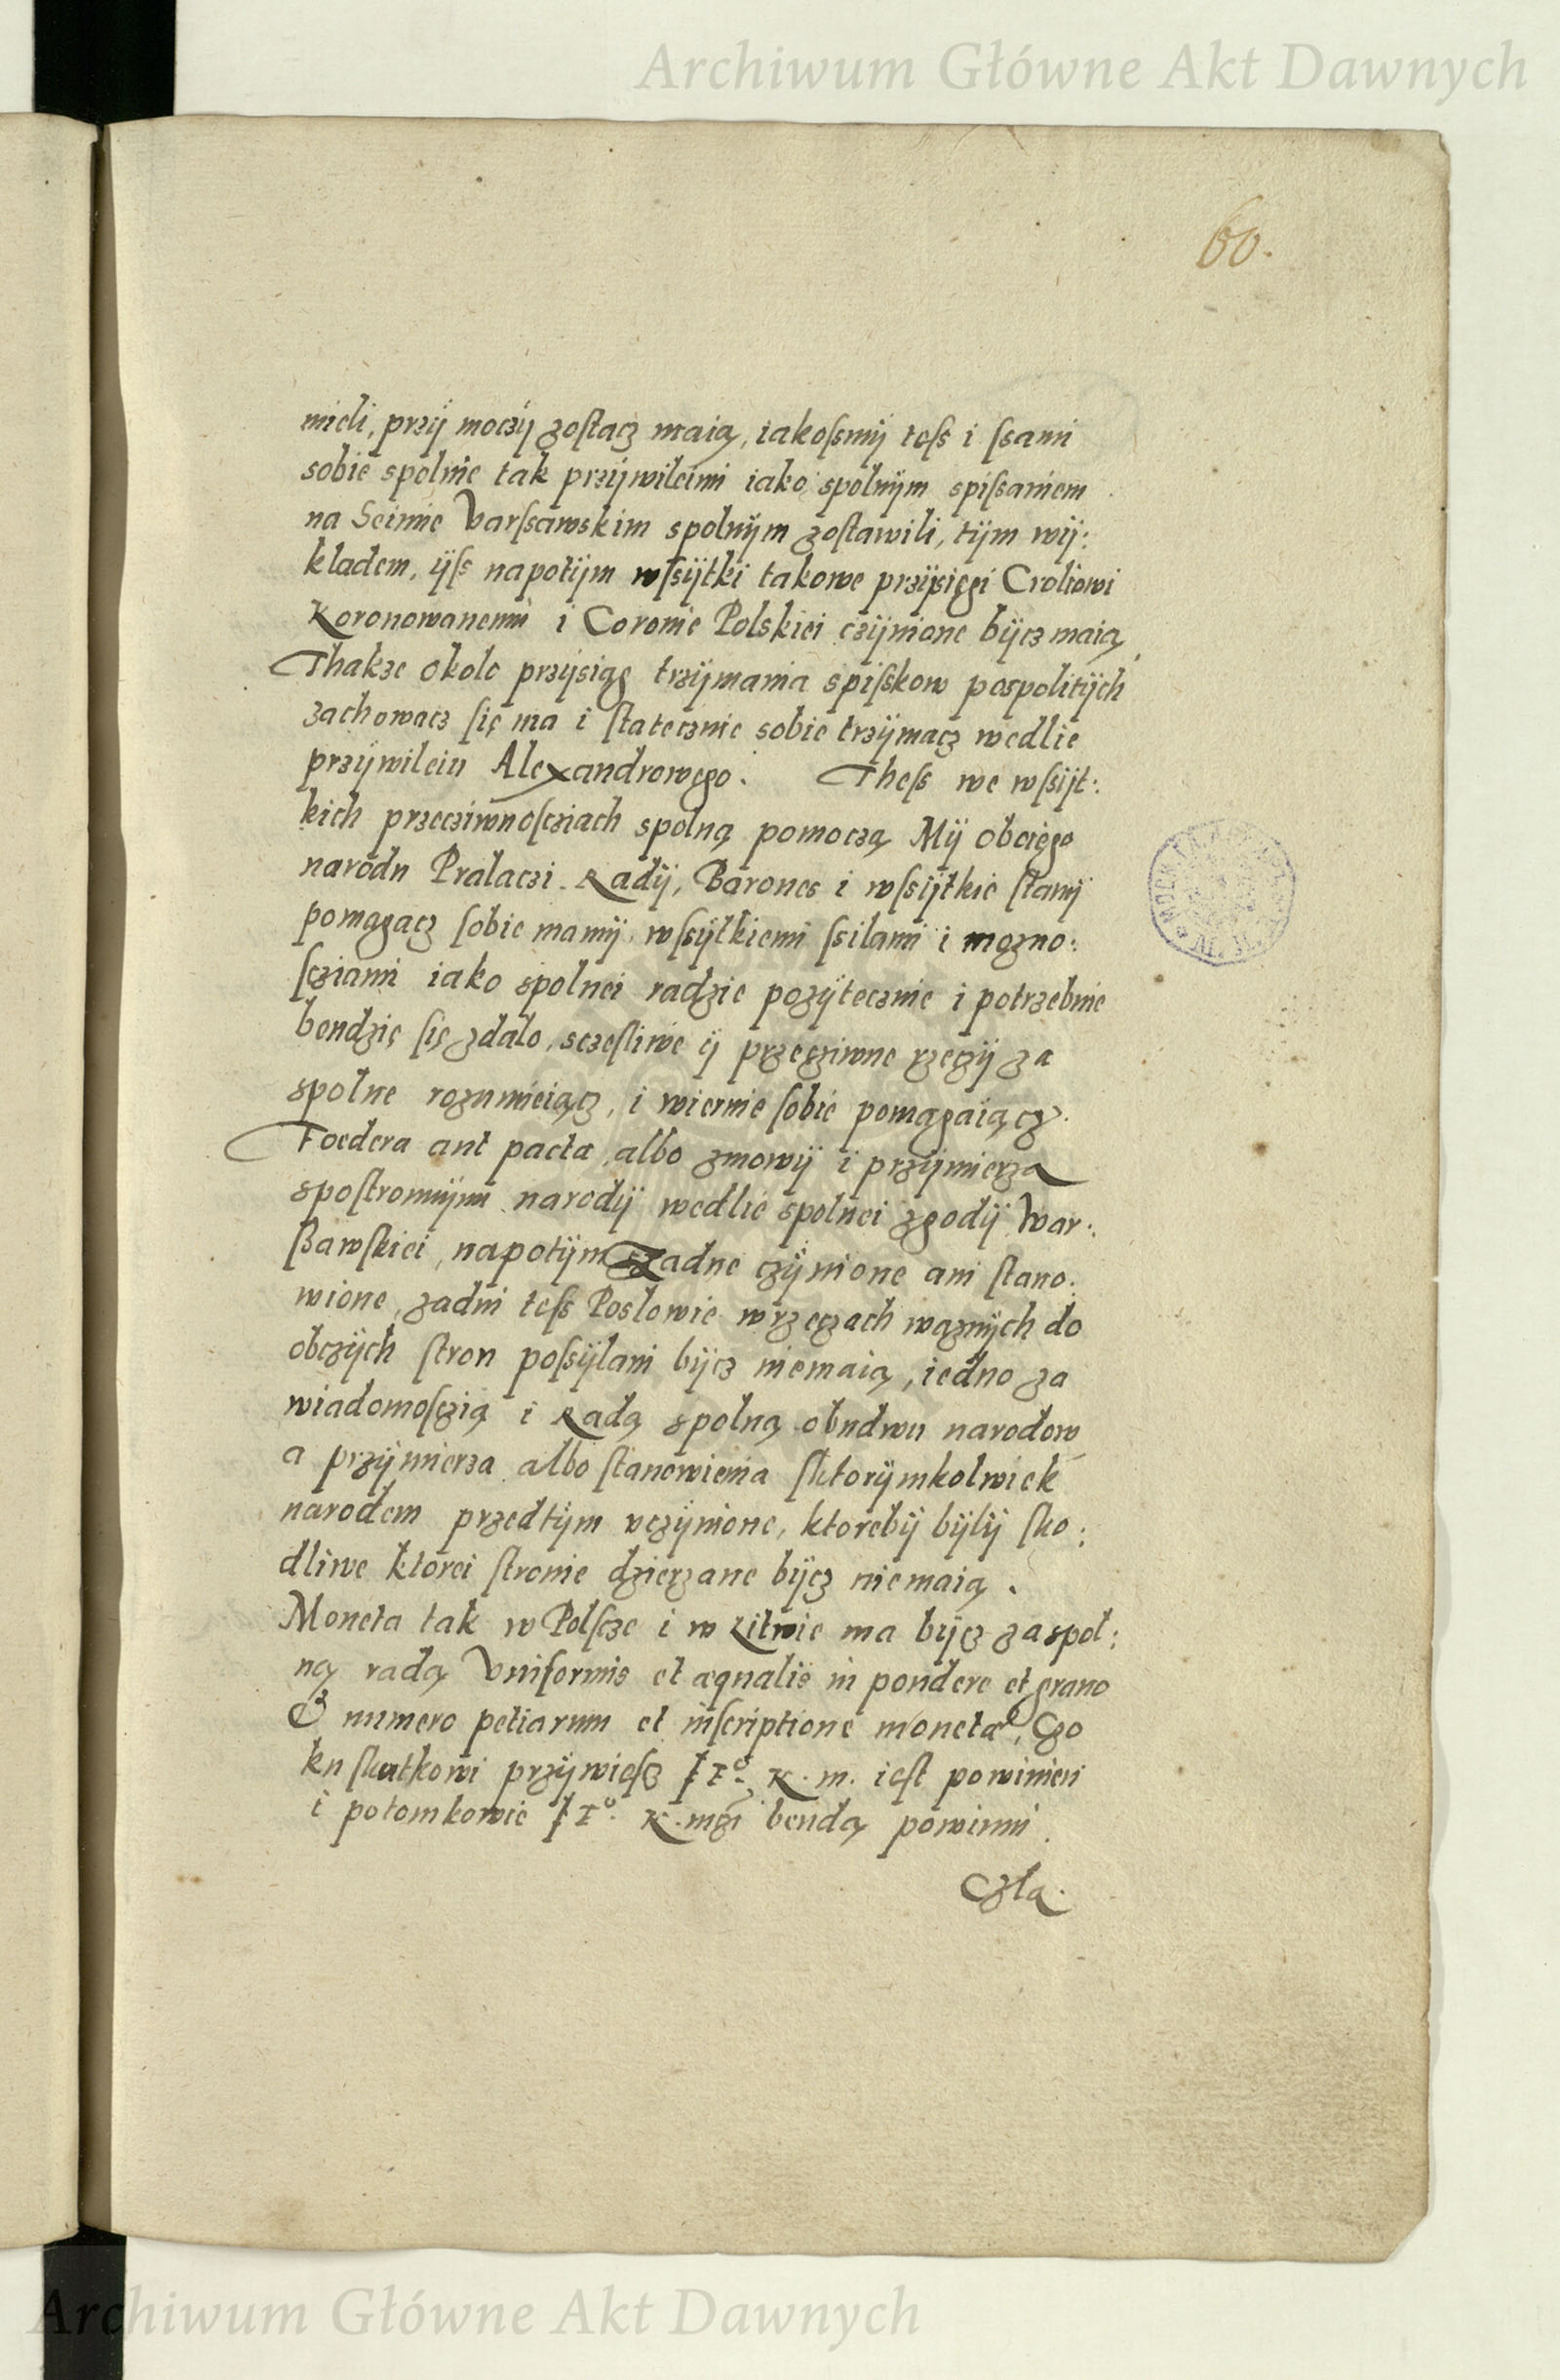 Archiwum Główne Akt Dawnych
60.
mieli, przÿ moczÿ zostacz maią, iakosmÿ tesß i ssami
sobie spolnie tak przÿwileimi iako spolnÿm spissaniem
na Seimie Varssawskim spolnÿm zostawili, tÿm wÿ:
kladem, ÿsß napotÿm wssÿtki takowe przÿsięgi Croliowi
Koronowanemu i Coronie Polskiei czÿnione bÿcz maią,
Thakze okolo przÿsiąg trzÿmania spisskow pospolitÿch
zachowacz się ma i statecznie sobie trzÿmacz wedlie
przÿwileiu Alexandrowego. Thesß we wssÿt:
kich przecziwnoscziach spolną pomoczą Mÿ obciego
narodu Pralaczi Radÿ, Barones i wssÿtkie stanÿ
pomagacz sobie mamÿ, wssÿtkiemi ssilami i mozno:
scziami iako spolnei radzie pozÿtecznie i potrzebnie
bendzię się zdalo, sczesliwe ÿ przecziwne rzeczÿ za
spolne rozumieiącz, i wiernie sobie pomagaiącz.
Foedera aut pacta, albo zmowÿ i przÿmierza
spostronnÿmi narodÿ wedlie spolnei zgodÿ War:
ssawskiei, napotÿm zadne czÿnione ani stano:
wione, zadni tesß Poslowie wrzeczach waznÿch do
obczÿch stron possÿlani bÿcz niemaią, iedno za
wiadomosczią i Radą spolną obudwu narodow
a przÿmierza albo stanowienia sktorÿmkolwiek
narodem przedtÿm vczÿnione, ktorebÿ bÿlÿ sko:
dliwe ktorei stronie dzierzane bÿcz niemaią.
Moneta tak w Polscze i w Litwie ma bÿcz zaspol:
ną radą Vniformis et æqualis in pondere et grano
& numero petiarum et inscriptione monetæ, Czo
ku skutkowi przÿwiescz K. m. iest powinien
i potomkowie K. mczi bendą powinni.
Czla.
Archiwum Główne Akt Dawnych